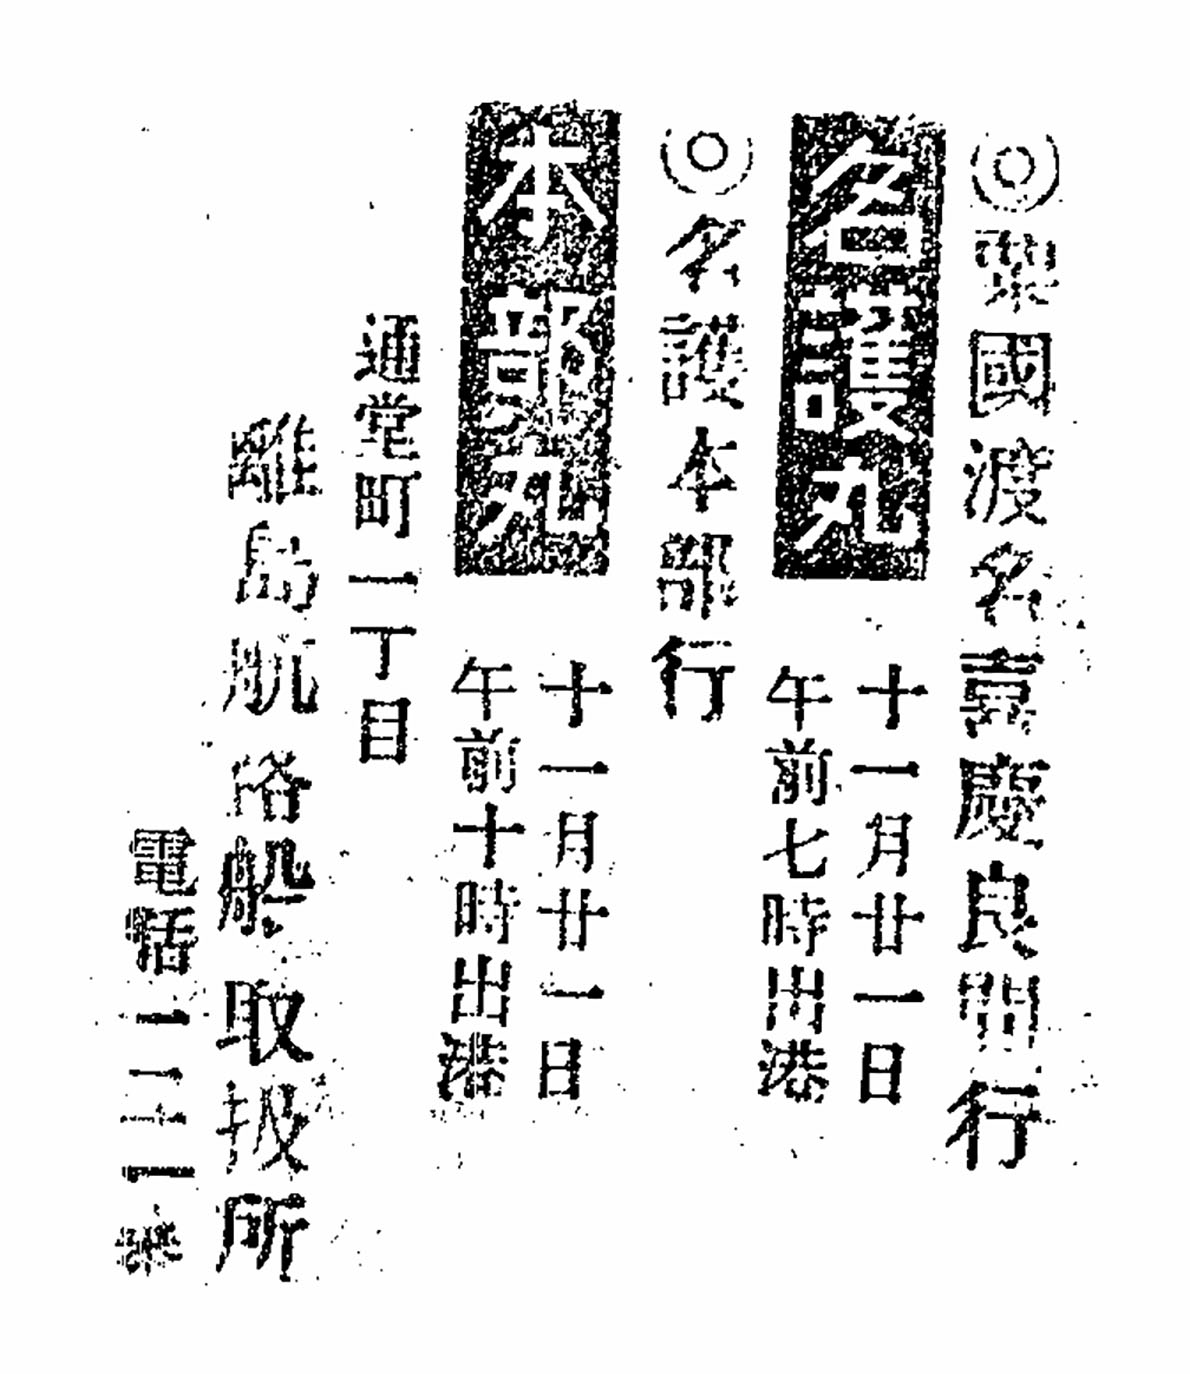 ◎粟國渡名喜慶良間行
名護丸
十一月廿一日
午前七時出港
◎名護本部行
本部丸
十一月廿一日
午前十時出港
通堂町一丁目
離島航路船取扱所
電話一二一番